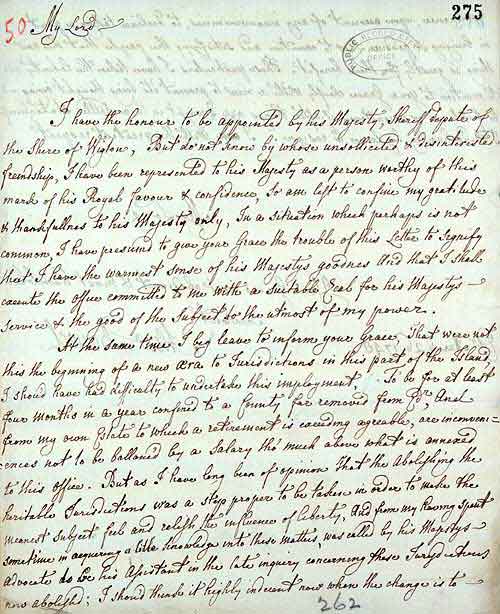 275
50 My Lord
PUBLIC RECORD OFFICE
I have the honour to be appointed by his Majesty, Sheriff Depute of
the Shire of Wigton, But do not know by whose unsollicited & disinterested
frendship, I have been represented to his Majesty as a person worthy of this
mark of his Royal favour & confidence, So am left to confine my gratitude
& thankfullness to his Majesty only, In a situation which perhaps is not
common, I have presumed to give your Grace the trouble of this Letter to signify
that I have the warmest sense of his Majestys goodness And that I shall
execute the office committed to me with a suitable Zeal for his Majestys
Service & the good of the Subject to the utmost of my power.
At the same time I beg leave to inform your Grace, That were not
this the beginning of a new Æra to Jurisdictions in this part of the Island,
I shoud have had difficulty to undertake this imployment, To be for at least
four months in a year confined to a County far removed from And
from my own Estate to which a retirement is exceeding agreable, are inconveni=
ences not to be ballanced by a Salary tho' much above what is annexed
to this office. But as I have long been of opinion That the Abolishing the
heritable Jurisdictions was a step proper to be taken in order to make the
meanest Subject feel and relish the influence of liberty, And from my having spent
sometime in acquiring a little knowledge into these matters, was called by his Majestys
Advocate to be his Assistant in the late inquiry concerning these Jurisdictions
now abolish'd; I should think it highly indecent now when the change is to
262